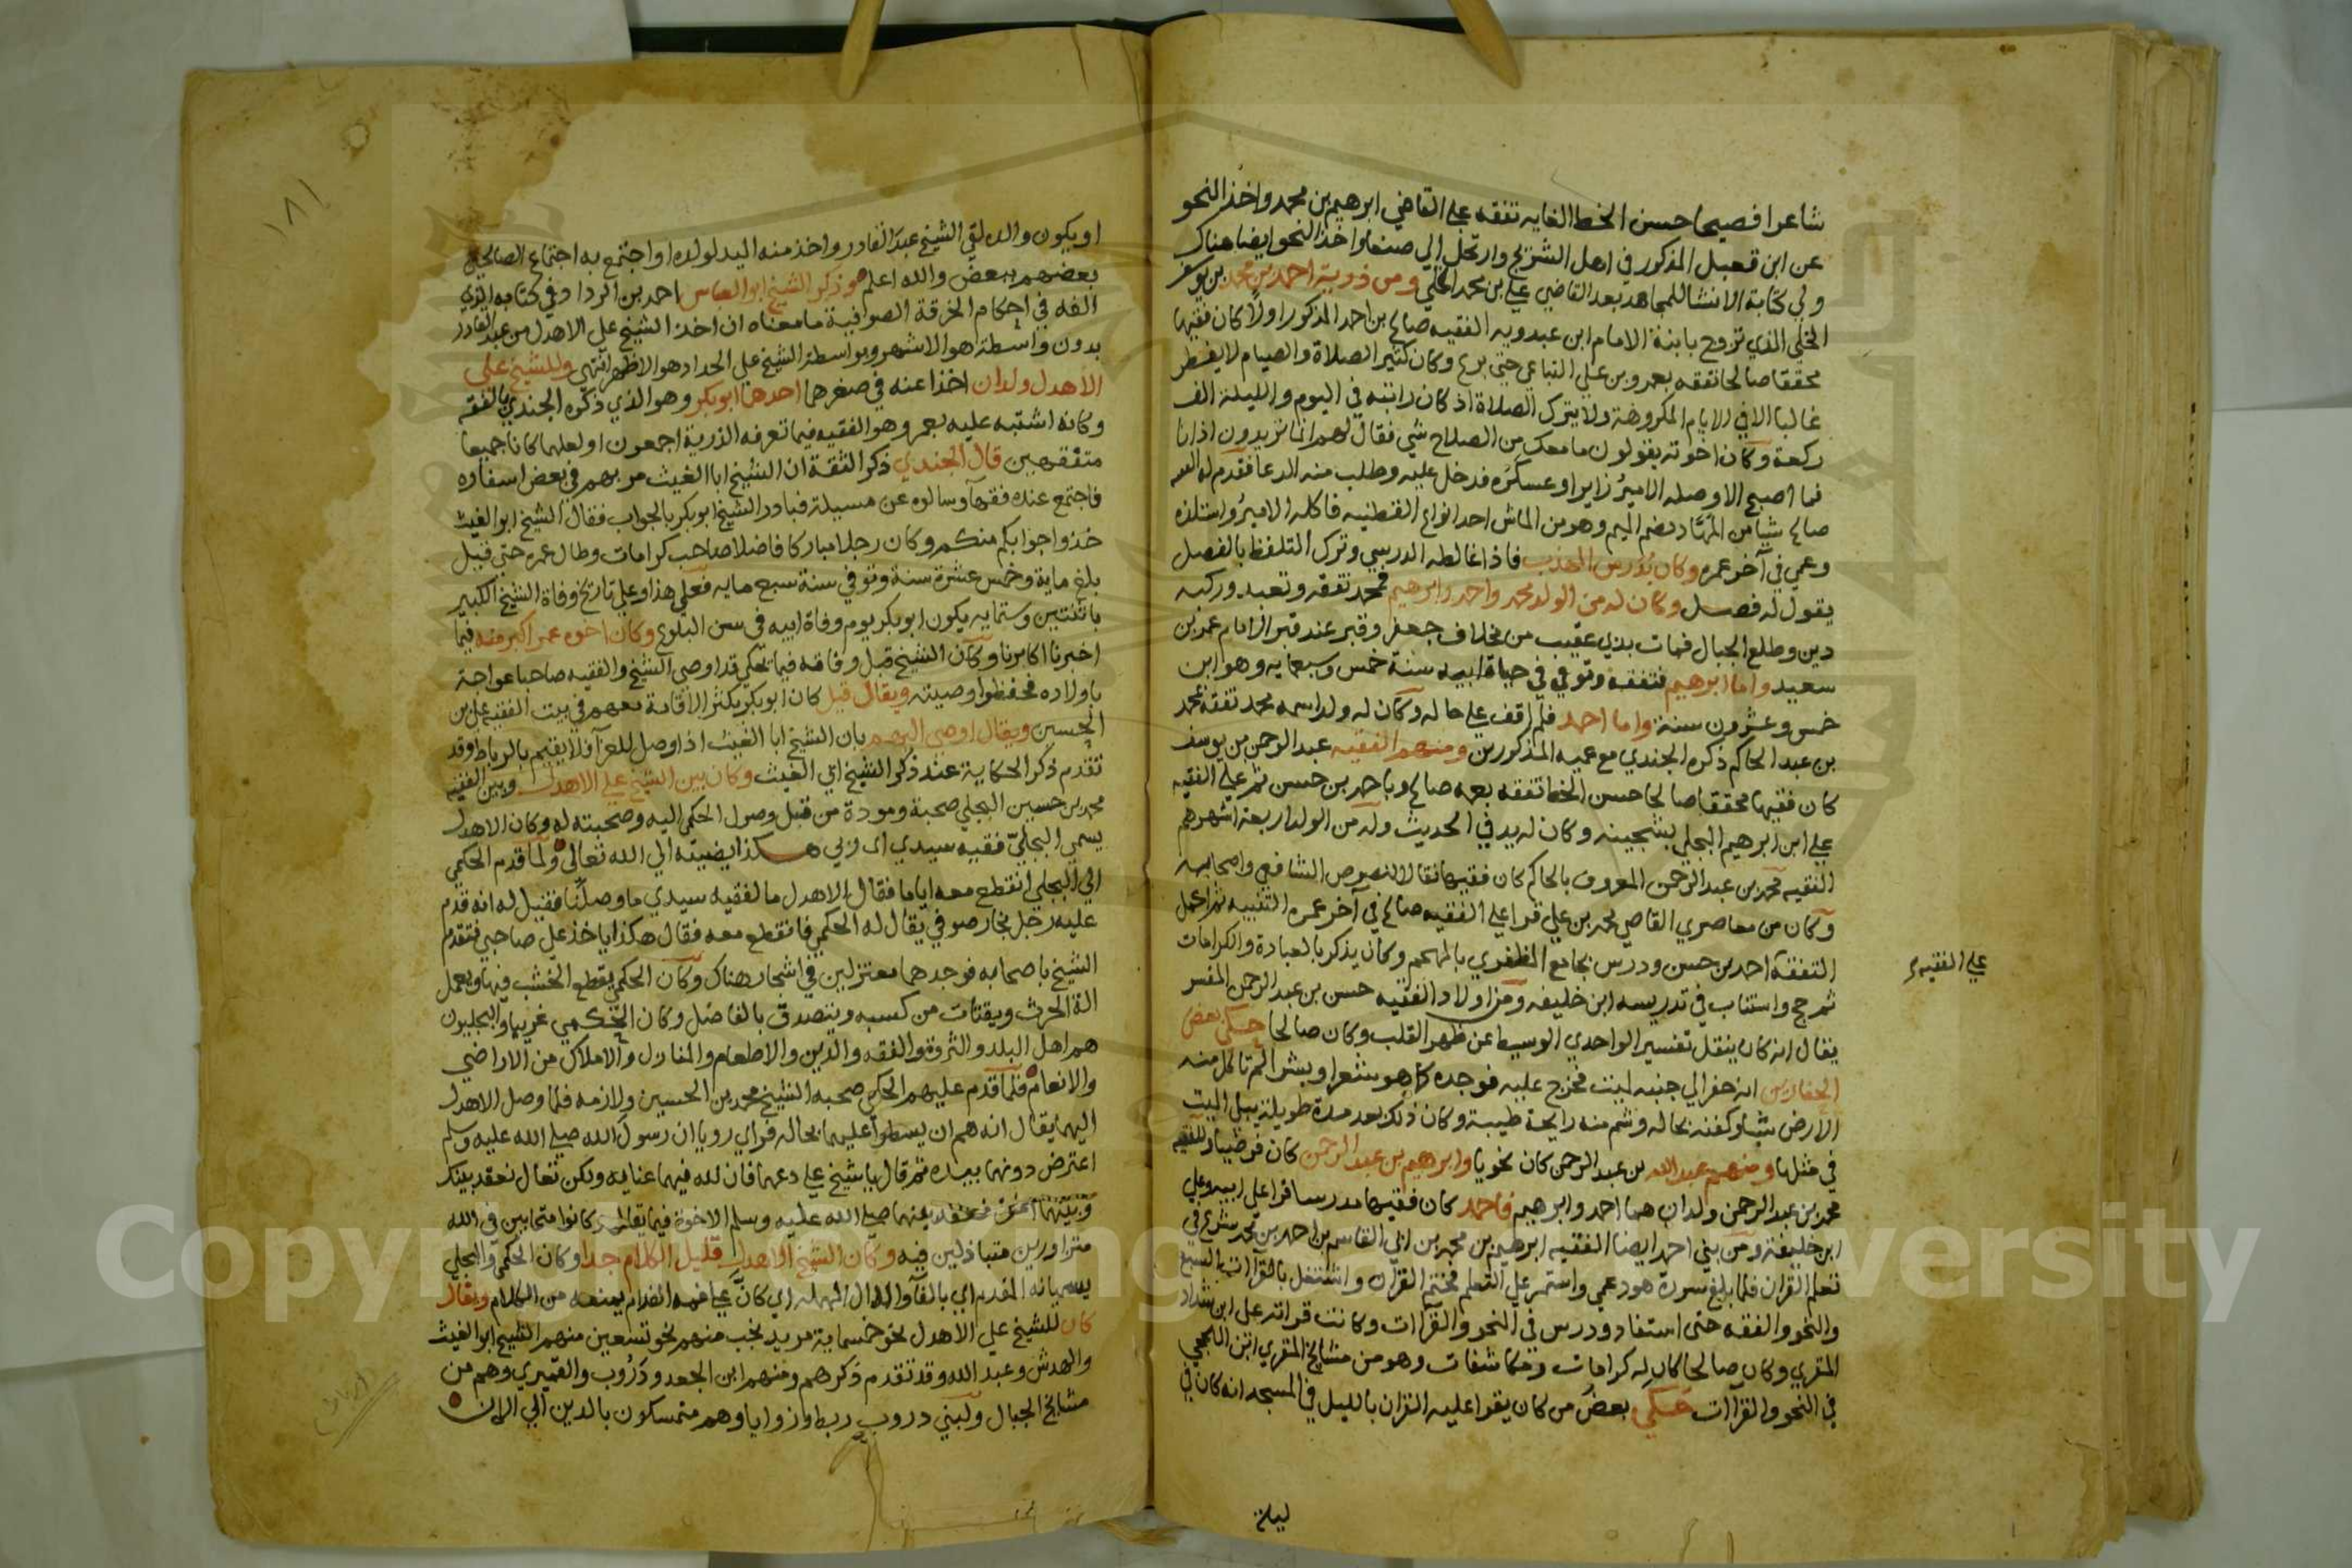 شاعرا فصيحا حسن الخط الغايه تفقه علي القاضي ابرهيم بن محمد واخذ النحو
عن ابن قعبل المذكور في اهل الشريج وارتحل الي صنعا واخذ النحو ايضا هناك
ولي كتابة الانشا للمجاهد بعد القاضي علي بن محمد الخلي ومن ذريته احمد بن محمد بن يوسف
الخلي الذي تزوج بابنة الامام ابن عبدويه الفقيه صالح بن احمد المذكور اولا كان فقيها
محققا صالحا تفقه بعمرو بن علي التباعي حتي برع وكان كثير الصلاة والصيام لا يفطر
غالبا الا في الايام المكروهة ولا يترك الصلاة اذ كان راتبه في اليوم والليلة الف
ركعة وكان اخوته يقولون ما معك من الصلاح شي فقال لهم انا تزيدون اذانا
فما اصبح الا وصله الامير زايرا وعسكره فدخل عليه وطلب منه الدعا فقدم له الفقيه
صالح شيا من المهاد بضم الميم وهو من الماش احد انواع القطنيه فاكله الامير واستلذه
وعمي في آخر عمره وكان يدرس المهذب فاذا غالطه الدرسي وترك التلفظ بالفصل
يقول له فصل وكان له من الولد محمد واحمد وابرهيم فمحمد تفقه وتعبد وركبه
دين وطلع الجبال فمات بذي عقيب من مخلاف جعفر وقبر عند قبر الامام عمر بن
سعيد واما ابرهيم فتفقه وتوفي في حياة ابيه سنة خمس وسبعمايه وهو ابن
خمس وعشرون سنة واما احمد فلم اقف علي حاله وكان له ولد اسمه محمد تفقه بمحمد
بن عبد الحاكم ذكره الجندي مع عميه المذكورين ومنهم الفقيه عبد الرحمن بن يوسف
كان فقيها محققا صالحا حسن الخط تفقه بعمه صالح وباحمد بن حسن ثم علي الفقيه
علي ابن ابرهيم البجلي بشجينه وكان له يد في الحديث وله من الولد اربعة اشهرهم
الفقيه محمد بن عبد الرحمن المعروف بالحاكم كان فقيها نقالا لنصوص الشافعي واصحابه
وكان من معاصري القاضي محمد بن علي قرا علي الفقيه صالح في آخر عمره التنبيه ثم اكمل
التفقه احمد بن حسن ودرس بجامع المظفري بالمهجم وكان يذكر بالعبادة والكرامات
علي الفقيه
ثم حج واستناب في تدريسه ابن خليفه ومن اولاد الفقيه حسن بن عبد الرحمن المفسر
يقال انه كان ينقل تفسير الواحدي الوسيط عن ظهر القلب وكان صالحا حكي بعض
الحفارين انه حفر الي جنبه لبنت فخرج عليه فوجده كما هو شعرا وبشرا لم تاكل منه
الارض شيا وكفنه بحاله وشم منه رايحة طيبة وكان ذلك بعد مدة طويلة يبلي الميت
في مثلها ومنهم عبد الله بن عبد الرحمن كان نحويا وابرهيم بن عبد الرحمن كان فرضيا وللفقيه
محمد بن عبد الرحمن ولدان هما احمد وابرهيم فاحمد كان فقيها مدرسا قرا علي ابيه وعلي
ابن خليفة ومن بني احمد ايضا الفقيه ابرهيم بن محمد بن ابي القاسم بن احمد بن محمد شرع في
تعلم القران فلما بلغ سورة هود عمي واستمر علي التعلم فختم القران واشتغل بالقراات السبع
والنحو والفقه حتى استفاد ودرس في النحو والقراات وكانت قراته علي ابن شداد
المقري وكان صالحا كان له كرامات ومكاشفات وهو من مشايخ المقري ابن اللحجي
في النحو والقراات حكي بعض من كان يقرا عليه القران بالليل في المسجد انه كان في
ليلة
١٨١
او يكون والده لقي الشيخ عبد القادر واخذ منه اليد لولده او اجتمع به اجتماع الصالحين
بعضهم ببعض والله اعلم وذكر الشيخ ابو العباس احمد بن الرداد في كتابه الذي
الفه في احكام الخرقة الصوافية ما معناه ان اخذ الشيخ علي الاهدل من عبد القادر
بدون واسطة هو الاشهر وبواسطة الشيخ علي الحداد هو الاظهر انتهي وللشيخ علي
الاهدل ولدان اخذا عنه في صغرهما احدهما ابوبكر وهو الذي ذكره الجندي بالفقه
وكانه اشتبه عليه بعمر وهو الفقيه فيما تعرفه الذرية اجمعون او لعلهما كانا جميعا
متفقهين قال الجندي ذكر الثقة ان الشيخ ابا الغيث مر بهم في بعض اسفاره
فاجتمع عنده فقها وسالوه عن مسيلة فبادر الشيخ ابوبكر بالجواب فقال الشيخ ابو الغيث
خذوا جوابكم منكم وكان رجلا مباركا فاضلا صاحب كرامات وطال عمره حتي قيل
بلغ ماية وخمس عشرة سنة وتوفي سنة سبع مايه فعلي هذا وعلي تاريخ وفاة الشيخ الكبير
باثنتين وستمايه يكون ابوبكر يوم وفاة ابيه في سن البلوغ وكان اخوه عمر اكبر منه فيما
اخبرنا اكابرنا وكان الشيخ قبل وفاته فيما يحكي قد اوصي الشيخ والفقيه صاحبا عواجة
باولاده فحفظوا وصيته ويقال قيل كان ابوبكر يكثر الاقامة معهم في بيت الفقيه علي بن
الحسين ويقال اوصي اليهم بان الشيخ ابا الغيث اذا وصل للعزا لا يقيم بالرباط وقد
تقدم ذكر الحكاية عند ذكر الشيخ ابي الغيث وكان بين الشيخ علي الاهدل وبين الفقيه
محمد بن حسين البجلي صحبة ومودة من قبل وصول الحكمي اليه وصحبته له وكان الاهدل
يسمي البجلي فقيه سيدي اي ربي هكذا يضيفه الي الله تعالي ولما قدم الحكمي
الي البجلي انقطع معه اياما فقال الاهدل ما لفقيه سيدي ما وصلنا فقيل له انه قدم
عليه رجل نجار صوفي يقال له الحكمي فانقطع معه فقال هكذا ياخذ علي صاحبي فتقدم
الشيخ باصحابه فوجدهما معتزلين في اشجار هناك وكان الحكمي يقطع الخشب فيها ويعمل
الة الحرث ويقتات من كسبه ويتصدق بالفاضل وكان الحكمي غريبا والبجليون
هم اهل البلد والثروة والفقه والدين والاطعام والمنازل والاملاك من الاراضي
والانعام فلما قدم عليهم الحكمي صحبه الشيخ محمد بن الحسين ولازمه فلما وصل الاهدل
اليهما يقال انه هم ان يسطوا عليهما بحاله فراي رويا ان رسول الله صلي الله عليه وسلم
اعترض دونهما بيده ثم قال يا شيخ علي دعهما فان لله فيهما عنايه ولكن تعال نعقد بينك
وبينهما فعقد بينهما صلي الله عليه وسلم الاخوة فيما يقال ثم كانوا متحابين في الله
متزاورين متباذلين فيه وكان الشيخ الاهدل قليل الكلام جدا وكان الحكمي والبجلي
يسميانه المفدم اي بالفا والدال المهمله اي كان علي فمه الفدام يمنعه من الكلام ويقال
كان للشيخ علي الاهدل نحو خمسماية مريد نجب منهم نحو تسعين منهم الشيخ ابو الغيث
والهدش وعبد الله وقد تقدم ذكرهم ومنهم ابن الجعد ودروب والقميري وهم من
مشايخ الجبال ولبني دروب ربط وزوايا وهم متمسكون بالدين الي الان
Copyright © King Saud University